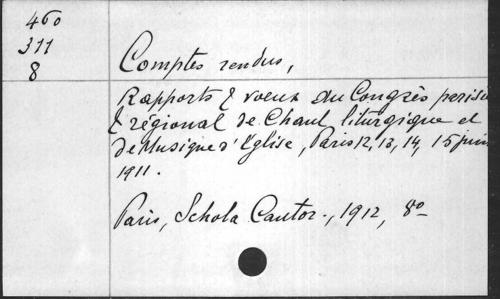 460
311
8
Comptes rendus,
Rapports & voeux du Congrès parisien
& régional de Chant liturgique et
de Musique d'Eglise, Paris 12, 13, 14, 15 juin
1911.
Paris, Schola Cantor., 1912, 8º